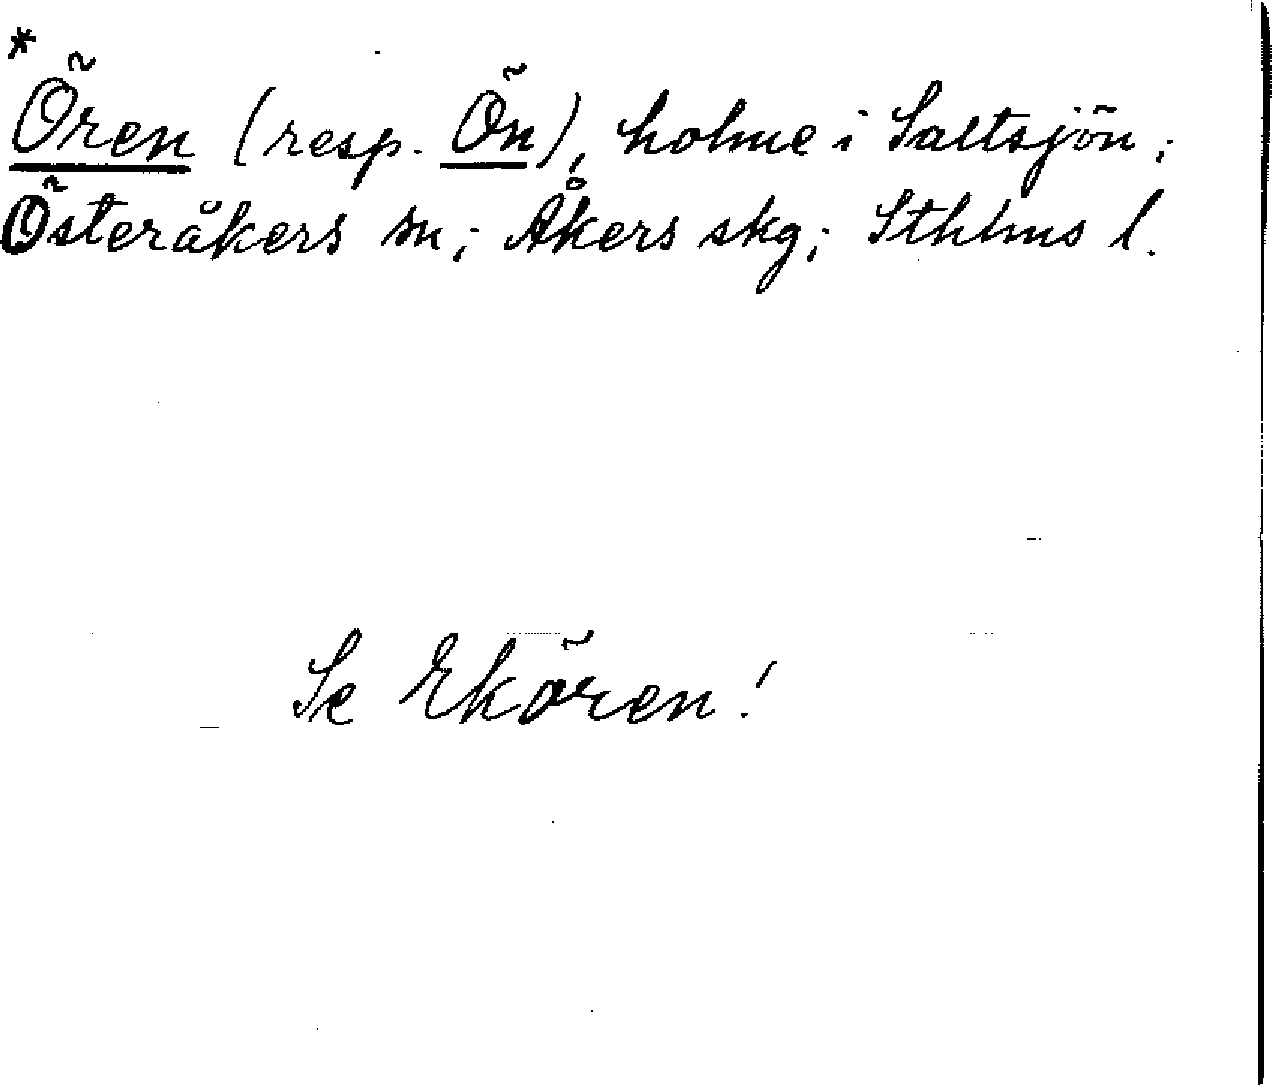 *
Ören (resp. Ön), holme i Saltsjön;
Österåkers sn; Åkers skg; Sthlms l.
Se Ekören!